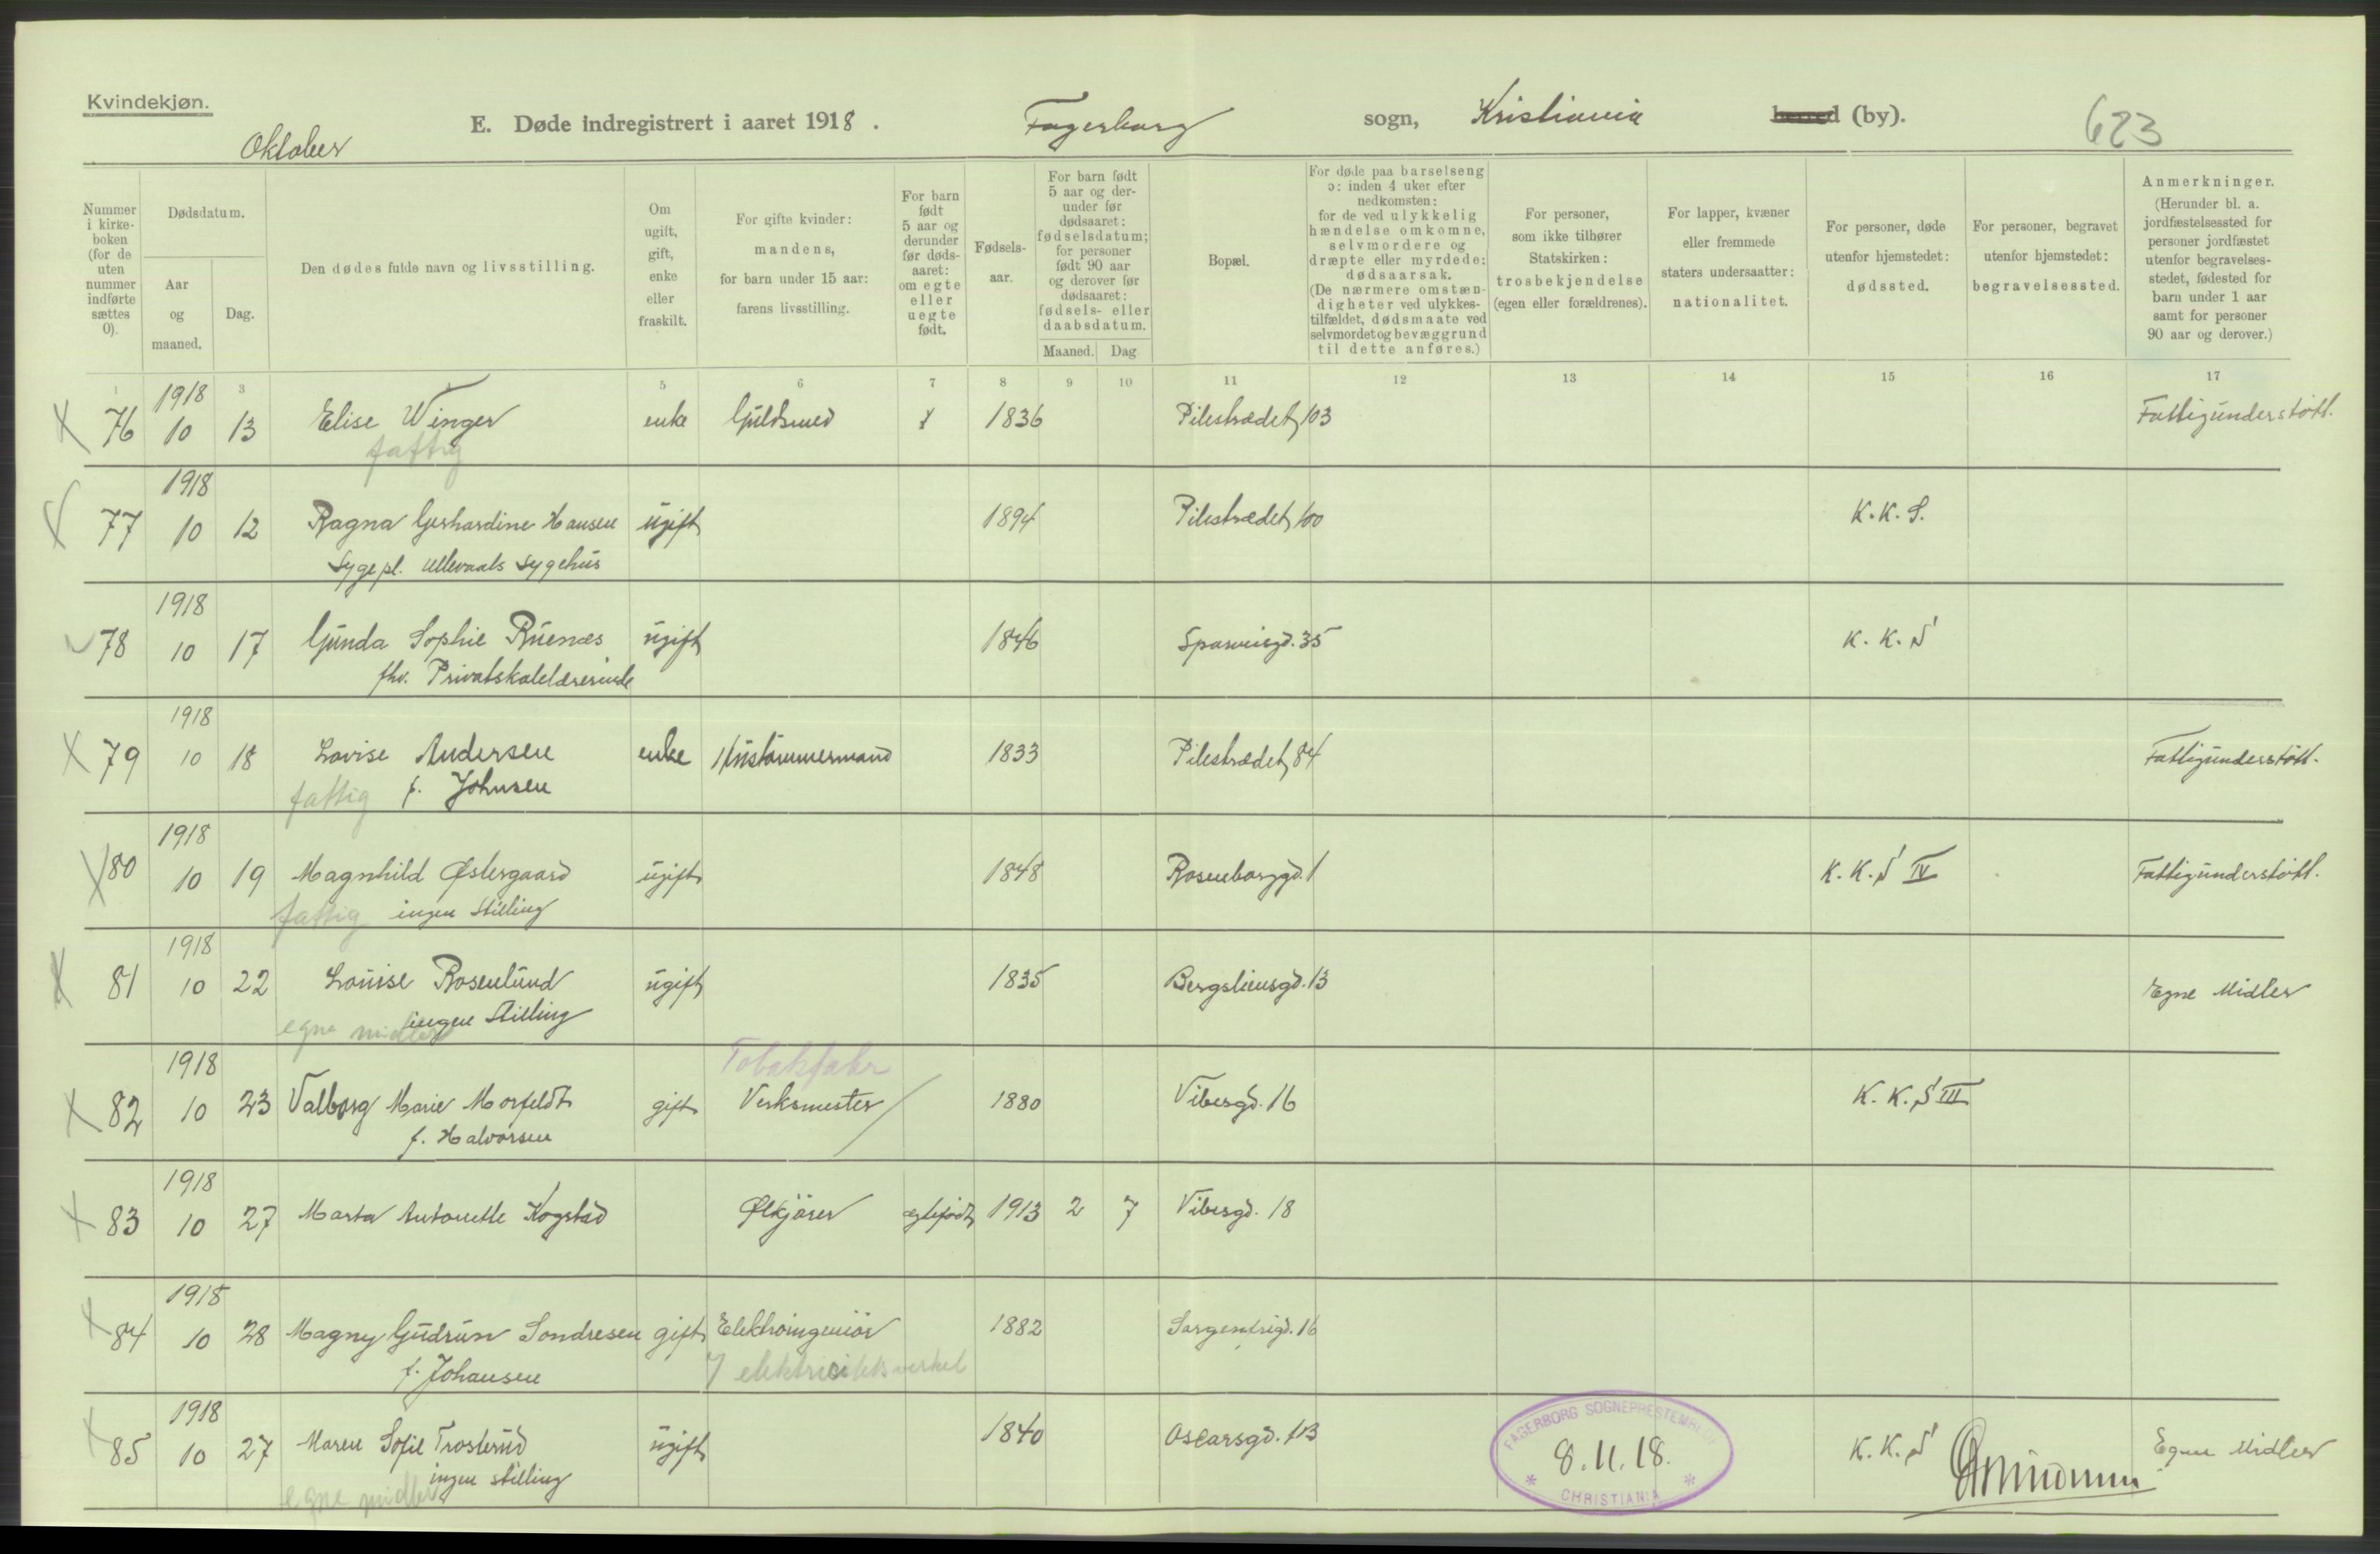 Kvindekjøn.
Oktober
E. Døde indregistrert i aaret 1918.
Fagerborg sogn, Kristiania herred (by).
623
Nummer i kirke-boken (for de uten nummer indførte sættes 0).
Dødsdatum.
Aar og maaned.
Dag.
Den dødes fulde navn og livsstilling.
Om ugift, gift, enke eller fraskilt.
For gifte kvinder: mandens, for barn under 15 aar: farens livsstilling.
For barn født 5 aar og derunder før døds-aaret: om egte eller uegte født.
Fødsels-aar.
For barn født 5 aar og der-under før dødsaaret: fødselsdatum; for personer født 90 aar og derover før dødsaaret: fødsels- eller daabsdatum.
Maaned. Dag
Bopæl.
For døde paa barselseng ɔ: inden 4 uker efter nedkomsten: for de ved ulykkelig hændelse omkomne, selvmordere og dræpte eller myrdede: dødsaarsak. (De nærmere omstæn-digheter ved ulykkes-tilfældet, dødsmaate ved selvmordet og bevæggrund til dette anføres.)
For personer, som ikke tilhører Statskirken: trosbekjendelse (egen eller forældrenes).
For lapper, kvæner eller fremmede staters undersaatter: nationalitet.
For personer, døde utenfor hjemstedet: dødssted.
For personer, begravet utenfor hjemstedet: begravelsessted.
Anmerkninger. (Herunder bl. a. jordfæstelsessted for personer jordfæstet utenfor begravelses-stedet, fødested for barn under 1 aar samt for personer 90 aar og derover.)
1 3 4 5 6 7 8 9 10 11 12 13 14 15 16 17
X 76 1918 10 13 Elise Winger enke Guldsmed 1836 Pilestrædet 103 Fattigunderstött.
fattig
X 77 1918 10 12 Ragna Gerhardine Hansen ugift 1894 Pilestrædet 100 K. K. S.
Sygepl. Ullevaals Sygehus
78 1918 10 17 Gunda Sophie Ruenæs ugift 1846 Sporveisgd. 35 K. K. S
fhv. Privatskolelærerinde
X 79 1918 10 18 Lovise Andersen enke Hustömmermand 1833 Pilestrædet 84 Fattigunderstött.
fattig f. Johnsen
X 80 1918 10 19 Magnhild Østergaard ugift 1848 Rosenborggd. 1 K. K. S IV Fattigunderstött.
fattig ingen Stilling
X 81 1918 10 22 Louise Rosenlund ugift 1835 Bergsliensgd. 13 Egne Midler
egne midler ingen Stilling
Tobakfabr
X 82 1918 10 23 Valborg Marie Morfeldt gift Verksmester 1880 Vibesgd. 16 K. K. S III
f. Halvorsen
X 83 1918 10 27 Marta Antonette Kogstad Ølkjörer egtefödt 1913 2 7 Vibesgd. 18
X 84 1918 10 28 Magny Gudrun Sondresen gift Elektroingeniör 1882 Sorgenfrigd. 16
f. Johansen elektricitetsverket
X 85 1918 10 27 Maren Sofie Trosterud ugift 1840 Oscarsgd. 13 K. K. S Egne Midler
egne midler ingen stilling
FAGERBORG SOGNEPRESTEMBEDE
8.11.18.
CHRISTIANIA